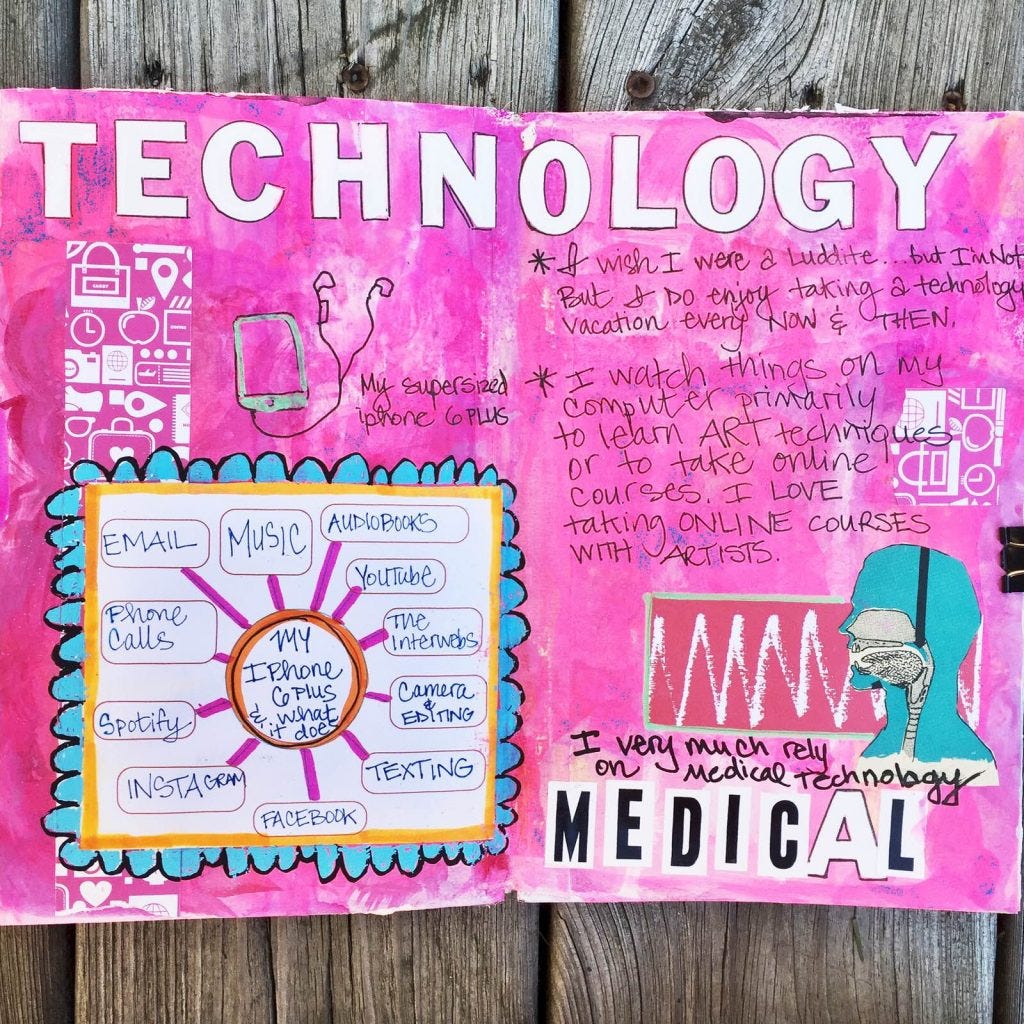 TECHNOLOGY
My supersized
iphone 6 PLUS
EMAIL
MUSIC
AUDIOBOOKS
YouTube
Phone
Calls
The
Interwebs
MY
IPhone
6 Plus
& what
it does
Camera
&
EDITING
Spotify
INSTAGRAM
TEXTING
FACEBOOK
* I wish I were a Luddite...but I'm Not
But I Do enjoy taking a technology
vacation every NOW & THEN.
* I watch things on my
computer primarily
to learn ART techniques
or to take online
courses. I LOVE
taking ONLINE COURSES
WITH ARTISTS.
I very much rely
on Medical Technology
MEDICAL